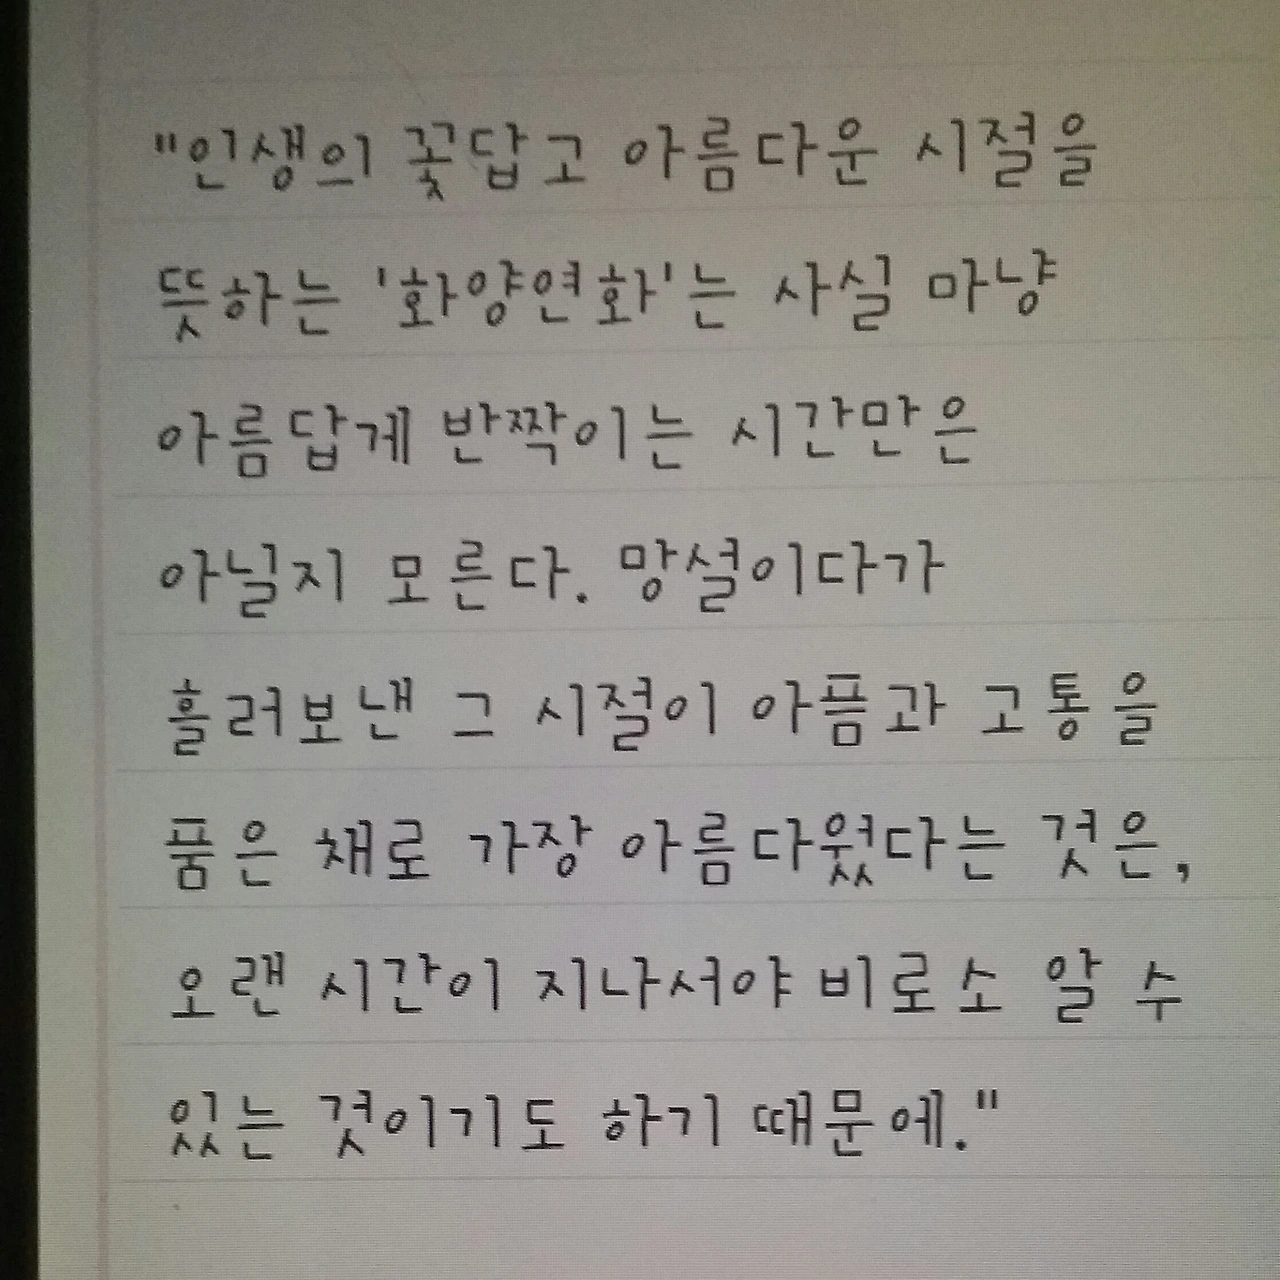 "인생의 꽃답고 아름다운 시절을
뜻하는 '화양연화'는 사실 마냥
아름답게 반짝이는 시간만은
아닐지 모른다. 망설이다가
흘러보낸 그 시절이 아픔과 고통을
품은 채로 가장 아름다웠다는 것은,
오랜 시간이 지나서야 비로소 알 수
있는 것이기도 하기 때문에."